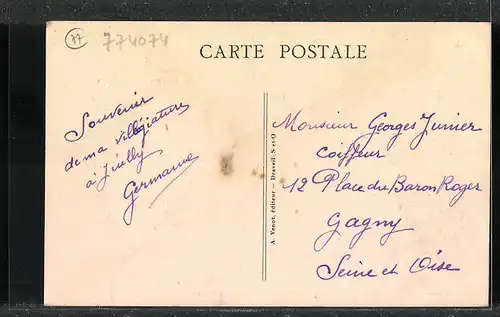 77
774074
CARTE POSTALE
Souvenir
de ma villégiature
à Juilly
Germaine
A. Venot, éditeur - Draveil (S-et-O)
Monsieur Georges Junier
Coiffeur
12 Place du Baron Roger
Gagny
Seine et Oise